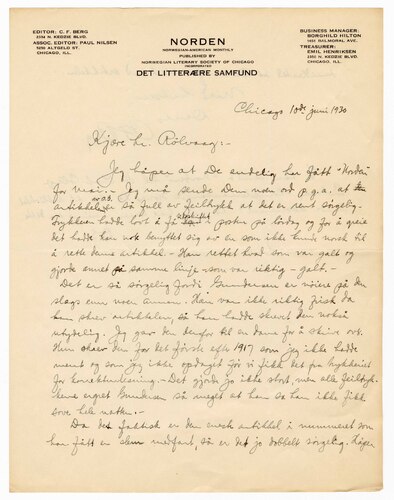 EDITOR: C. F. BERG
2314 N. KEDZIE BLVD.
ASSOC. EDITOR: PAUL NILSEN
1250 ALTGELD ST.
CHICAGO, ILL.
NORDEN
NORWEGIAN-AMERICAN MONTHLY
PUBLISHED BY
NORWEGIAN LITERARY SOCIETY OF CHICAGO
INCORPORATED
DET LITTERÆRE SAMFUND
BUSINESS MANAGER:
BORGHILD HILTON
1651 BALMORAL AVE.
TREASURER:
EMIL HENRIKSEN
3350 N. KEDZIE BLVD.
CHICAGO, ILL.
Chicago 10de juni 1930
Kjære hr. Rölvaag:-
Jeg håper at De endelig har fått "Norden"
for mai.- Jeg må sende Dem noen ord p.g.a. at
artikkelen er så full av feiltrykk at det er rent sörgelig.
Trykkeren hadde lovt å få i posten på lördag og for å greie
det hadde han nok benyttet sig av en som ikke kunde norsk til
å rette denne artikkel.- Han rettet hvad som var galt og
gjorde samme linje - som var riktig - galt.-
Det er så sörgelig fordi Gundersen er nöiere på den
slags enn noen annen. Han var ikke riktig frisk da
han skrev artikkelen, så han hadde skrevet den nokså
utydelig. Jeg gav den derfor til en dame for å skrive
Hun den for det förste efter 1917 som jeg ikke hadde
ment og som jeg ikke opdaget för vi fikk det fra trykkeriet
for korrekturlesning.- Det gjorde jo ikke stort, men alle feiltryk-
kene ergret Gundersen så meget at han sa han ikke fikk
sove hele natten.-
Da det faktisk er den eneste artikkel i nummeret som
har fått en slem medfart, så er det jo dobbelt sörgelig. Håper